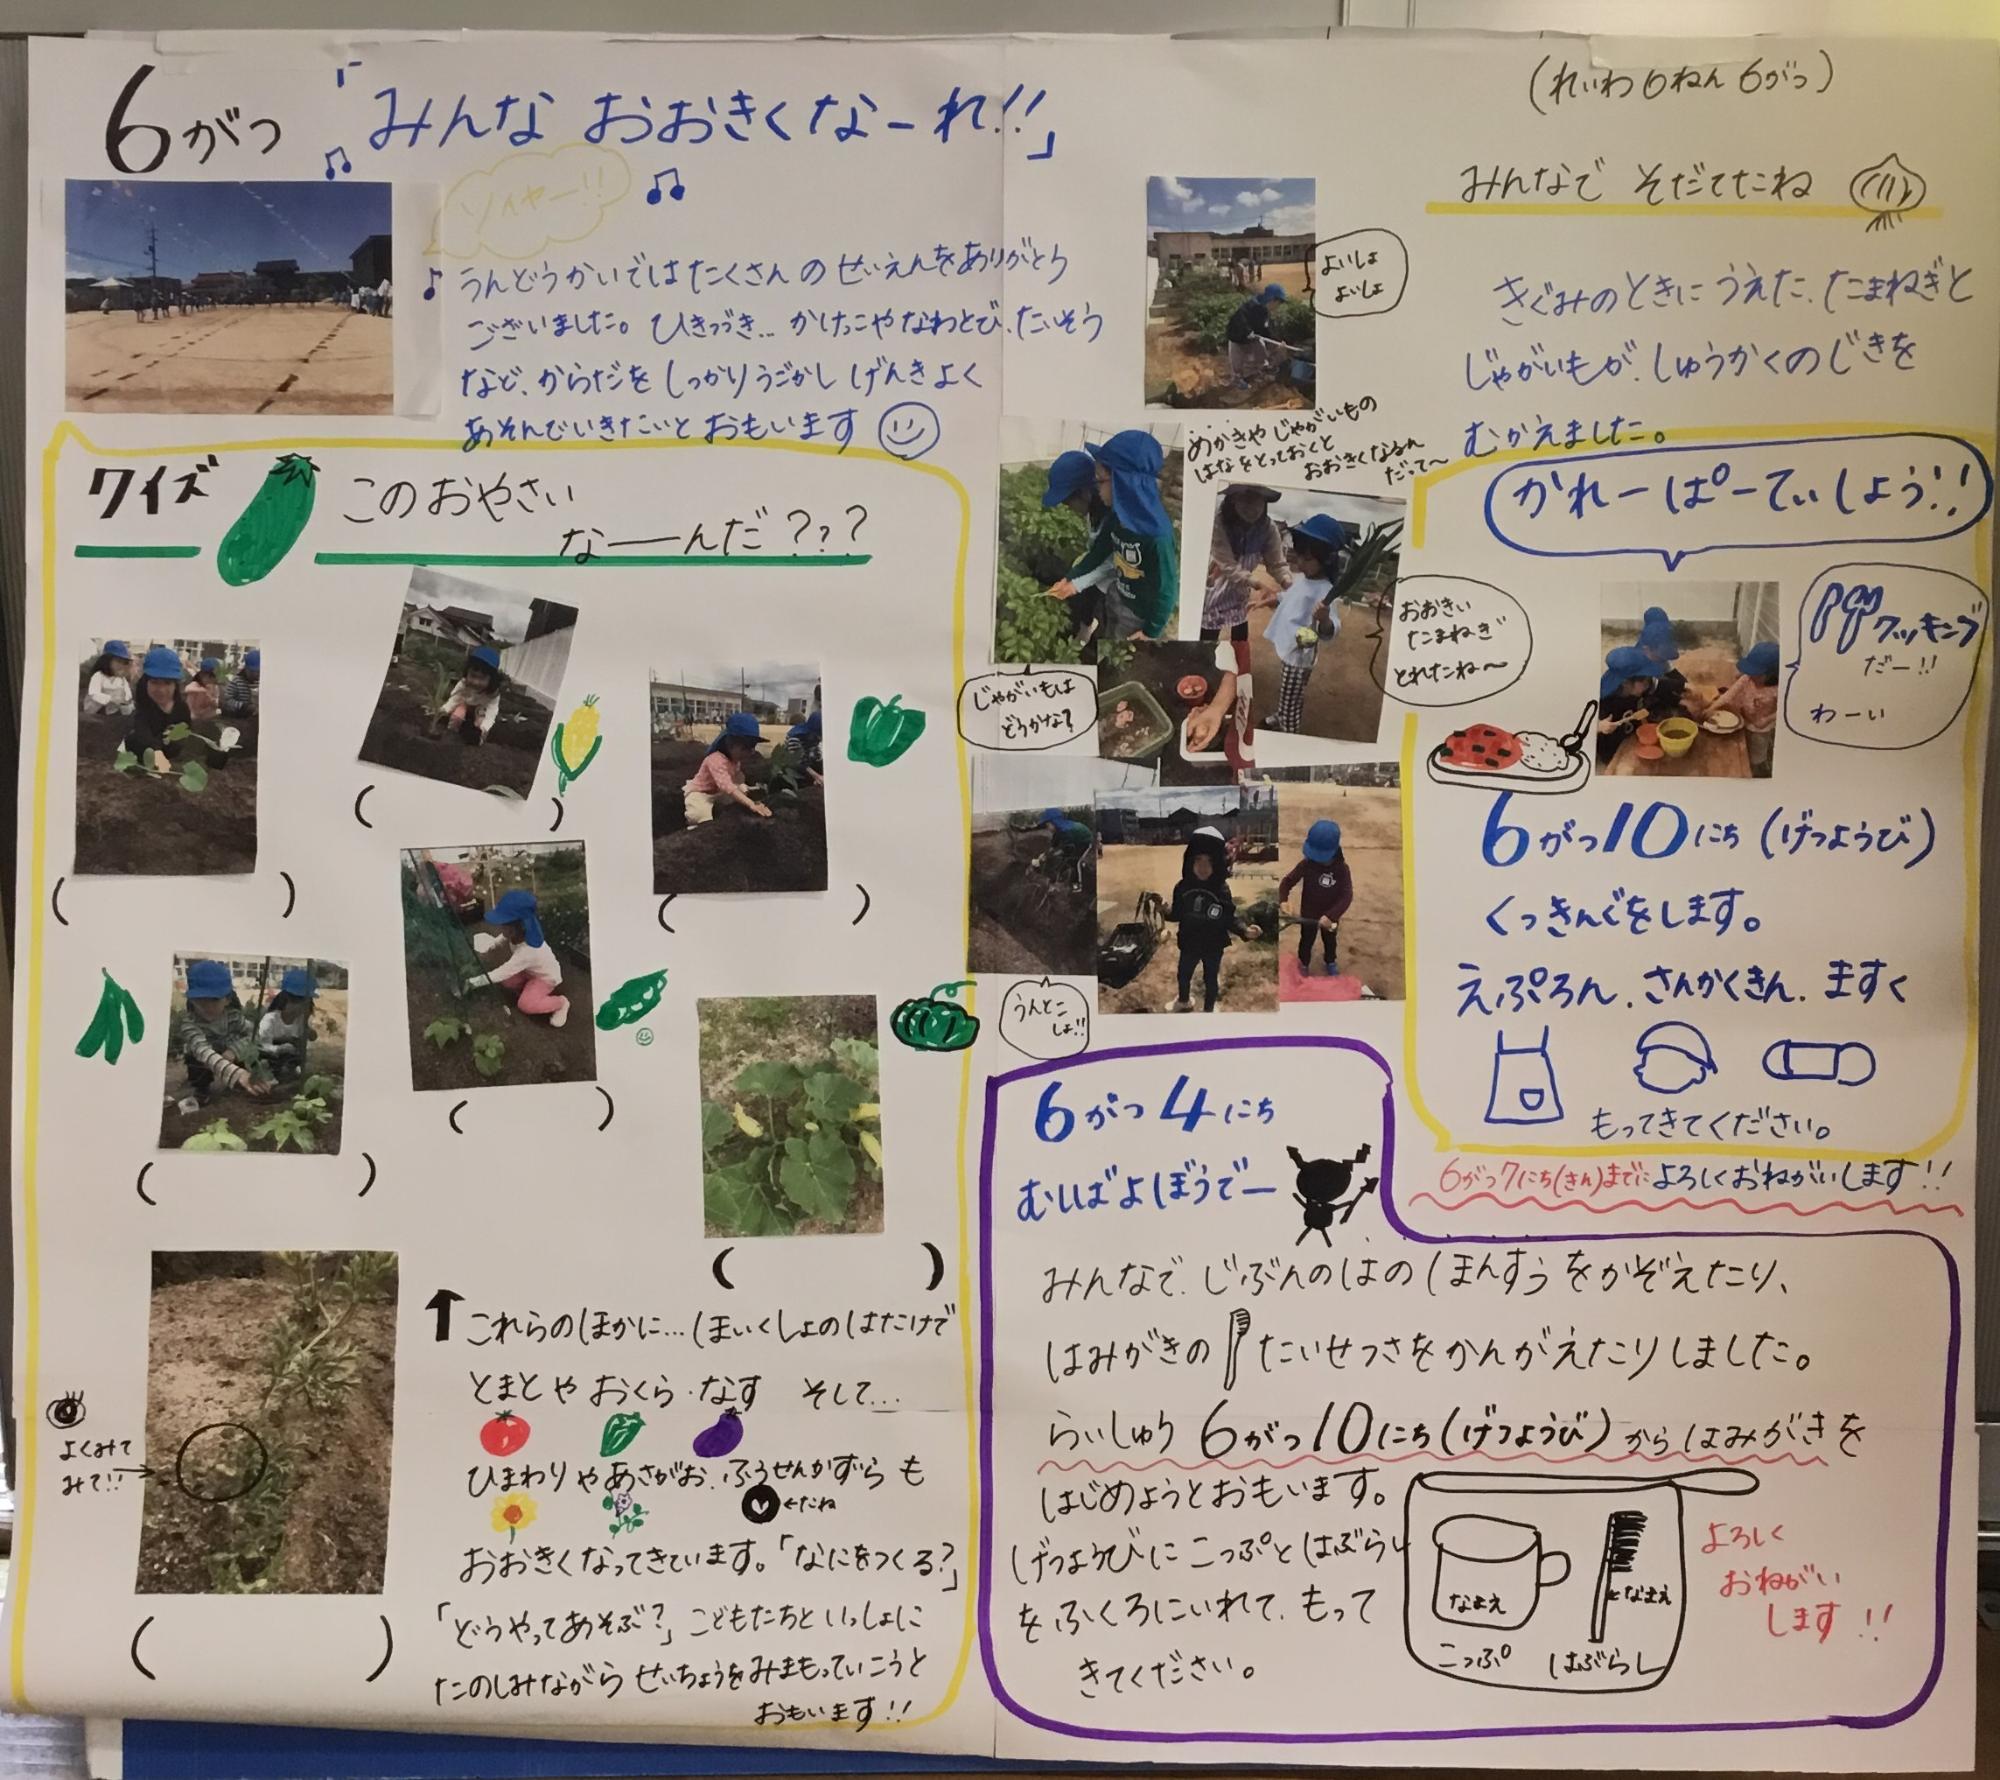 6がつ「みんな おおきくなーれ!!」
(れいわ6ねん 6がつ)
ソイヤー!!
うんどうかいでは たくさんの せいえんを ありがとう
ございました。ひきつづき… かけっこや なわとび、たいそう
など、からだを しっかり うごかし げんきよく
あそんでいきたいと おもいます
クイズ このおやさい
なーんだ???
( )
( )
( )
( )
( )
( )
よくみて
みて!!
( )
これらのほかに…ほいくしょのはたけで
とまとや おくら・なす そして…
ひまわりや あさがお、ふうせんかずらも
←たね
おおきくなってきています。「なにをつくる?」
「どうやってあそぶ?」こどもたちといっしょに
たのしみながら せいちょうをみまもっていこうと
おもいます!!
みんなで そだてたね
さくみのときに うえた、たまねぎと
じゃがいもが、しゅうかくのじきを
むかえました。
よいしょ
よいしょ
めかきや じゃがいもの
はなをとっておくと
おおきくなるん
だって〜
じゃがいもは
どうかな?
おおきい
たまねぎ
とれたね〜
うんとこ
しょ!!
かれーぱーてぃしよう!!
クッキング
だー!!
わーい
6がつ10にち(げつようび)
くっきんぐをします。
えぷろん、さんかくきん、ますく
もってきてください。
6がつ7にち(きん)までに よろしくおねがいします!!
6がつ4にち
むしばよぼうでー
みんなで、じぶんのはの ほんすうをかぞえたり、
はみがきの たいせつさをかんがえたりしました。
らいしゅう 6がつ10にち(げつようび)から はみがきを
はじめようとおもいます。
げつようびに こっぷと はぶらし
を ふくろにいれて、もって
きてください。
なまえ
こっぷ
←なまえ
はぶらし
よろしく
おねがい
します!!